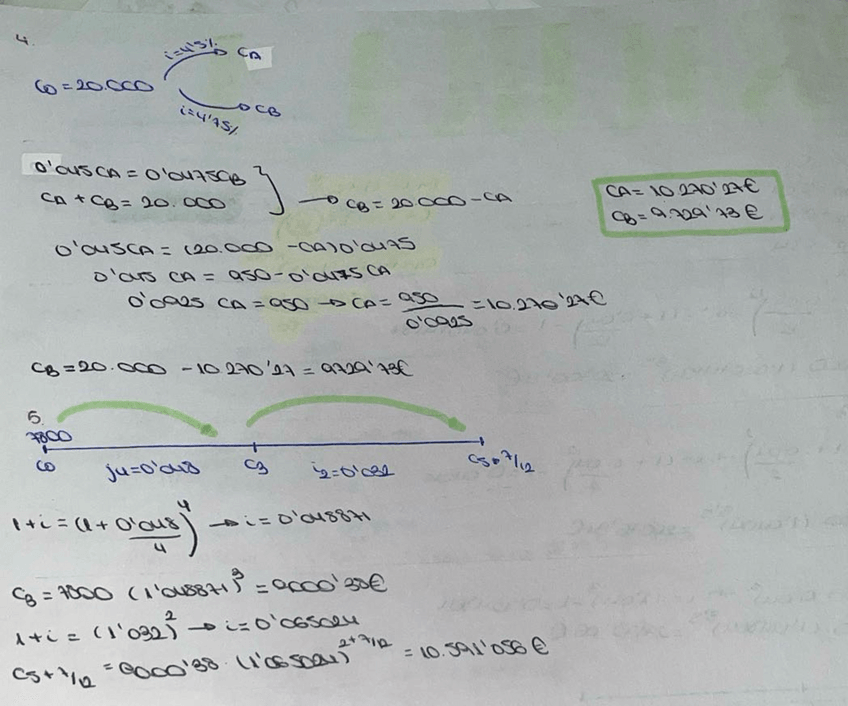 4.
i=4'5% CA
C0=20.000
i=4'75% CB
0'045CA = 0'0475CB
CA + CB = 20.000 → CB = 20.000 - CA
CA = 10.270'27€
CB = 9.729'73€
0'045CA = (20.000 - CA)0'0475
0'045 CA = 950 - 0'0475 CA
0'0925 CA = 950 → CA = 950/0'0925 = 10.270'27€
CB = 20.000 - 10.270'27 = 9729'73€
5.
7800
C0 j4=0'048 C3 i2=0'032 C5+7/12
1+i = (1 + 0'048/4)^4 → i = 0'048871
C3 = 7800 (1'048871)^3 = 9000'38€
1+i = (1'032)^2 → i = 0'065024
C5+7/12 = 9000'38 · (1'065024)^2+7/12 = 10.591'058 €